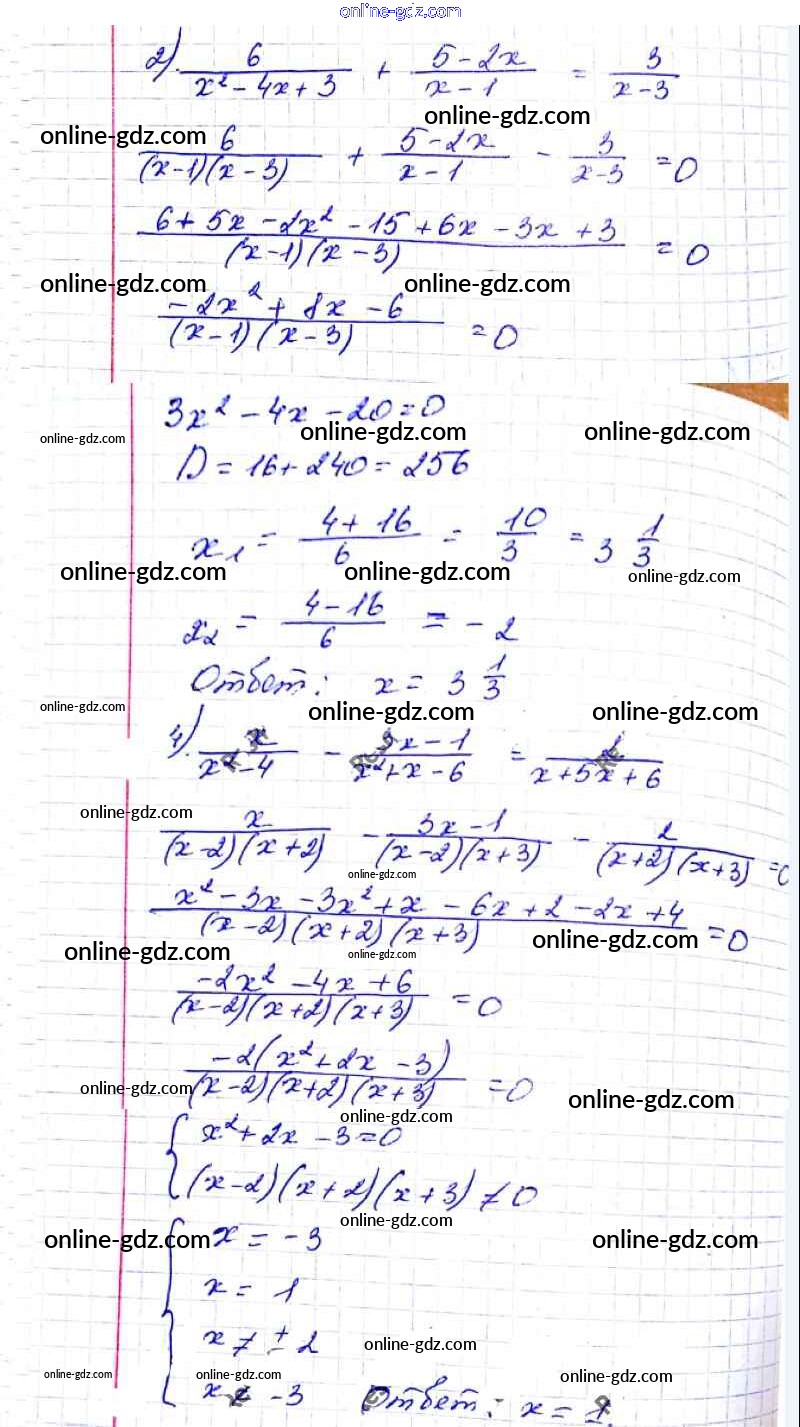 online-gdz.com
2). 6/(x² - 4x + 3) + (5 - 2x)/(x - 1) = 3/(x - 3)
online-gdz.com
online-gdz.com
6/((x-1)(x-3)) + (5 - 2x)/(x - 1) - 3/(x-3) = 0
(6 + 5x - 2x² - 15 + 6x - 3x + 3)/((x-1)(x-3)) = 0
online-gdz.com online-gdz.com
(-2x² + 8x - 6)/((x-1)(x-3)) = 0
3x² - 4x - 20 = 0
online-gdz.com online-gdz.com online-gdz.com
D = 16 + 240 = 256
x₁ = (4 + 16)/6 = 10/3 = 3 1/3
online-gdz.com online-gdz.com online-gdz.com
x₂ = (4 - 16)/6 = -2
Ответ: x = 3 1/3
online-gdz.com online-gdz.com online-gdz.com
4). x/(x² - 4) - (3x - 1)/(x² + x - 6) = 2/(x + 5x + 6)
online-gdz.com
x/((x-2)(x+2)) - (3x - 1)/((x-2)(x+3)) - 2/((x+2)(x+3)) = 0
online-gdz.com
(x² - 3x - 3x² + x - 6x + 2 - 2x + 4)/((x-2)(x+2)(x+3)) = 0
online-gdz.com online-gdz.com online-gdz.com
(-2x² - 4x + 6)/((x-2)(x+2)(x+3)) = 0
(-2(x² + 2x - 3))/((x-2)(x+2)(x+3)) = 0
online-gdz.com online-gdz.com
online-gdz.com
{ x² + 2x - 3 = 0
(x-2)(x+2)(x+3) ≠ 0
online-gdz.com
online-gdz.com online-gdz.com
{ x = -3
x = 1
x ≠ ± 2
online-gdz.com
online-gdz.com online-gdz.com online-gdz.com
x ≠ -3 Ответ: x = 1.